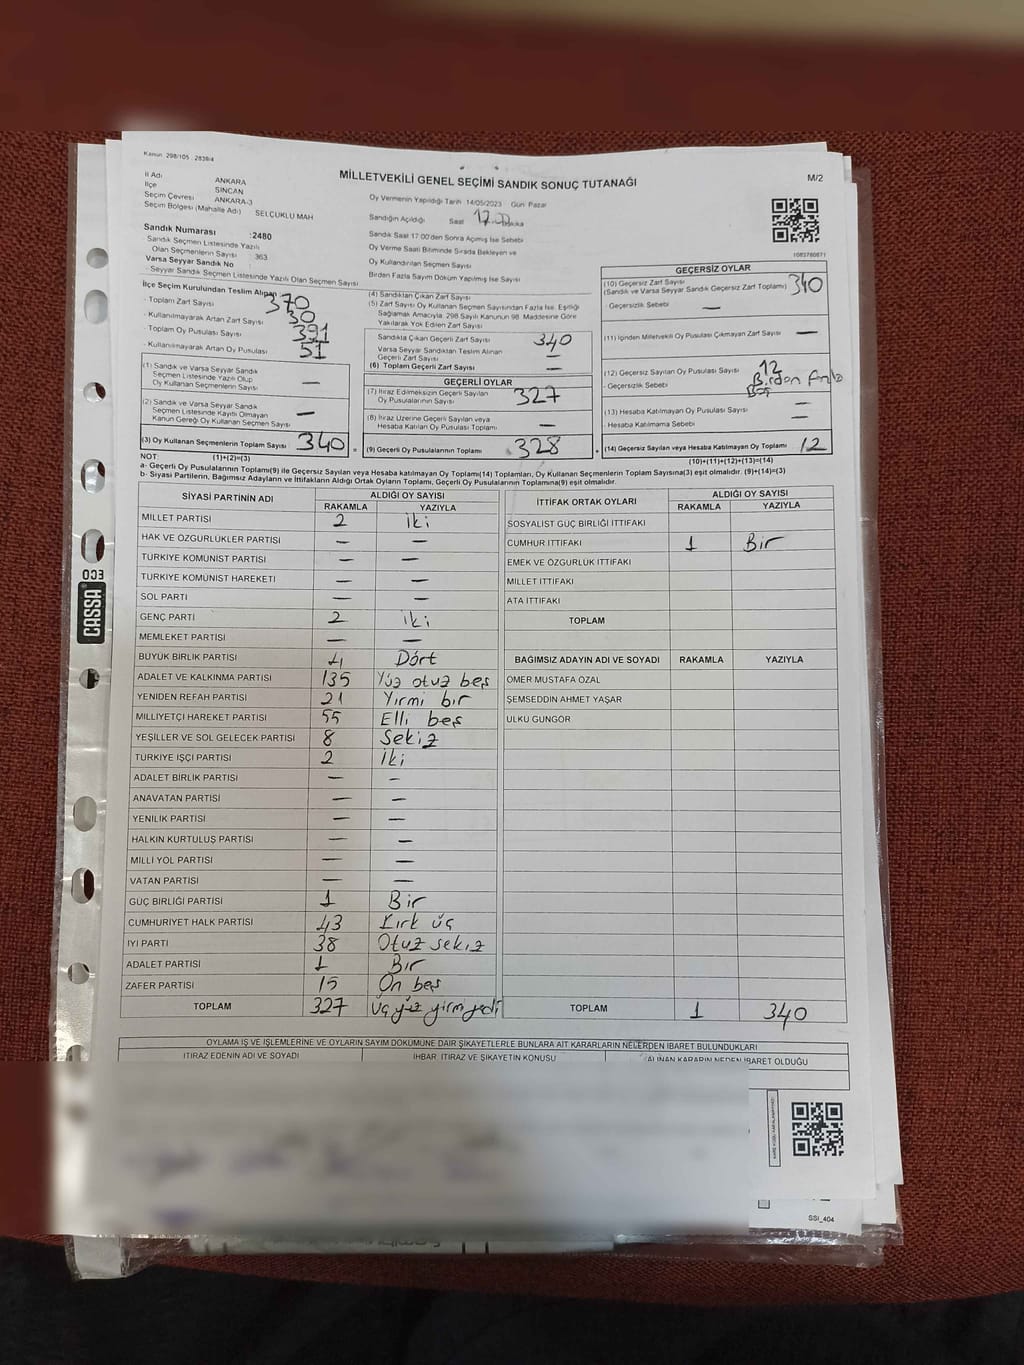 Kanun 298/105 2839/4
M/2
MİLLETVEKİLİ GENEL SEÇİMİ SANDIK SONUÇ TUTANAĞI
İl Adı ANKARA
İlçe SİNCAN
Seçim Çevresi ANKARA-3
Seçim Bölgesi (Mahalle Adı) SELÇUKLU MAH
Sandık Numarası :2480
Sandık Seçmen Listesinde Yazılı
Olan Seçmenlerin Sayısı 363
Varsa Seyyar Sandık No
Seyyar Sandık Seçmen Listesinde Yazılı Olan Seçmen Sayısı
Oy Vermenin Yapıldığı Tarih 14/05/2023 Gün Pazar
Sandığın Açıldığı Saat 17.00 Dakika
Sandık Saat 17 00'den Sonra Açımış İse Sebebi
Oy Verme Saati Bitiminde Sırada Bekleyen ve
Oy Kullandırılan Seçmen Sayısı
Birdan Fazla Sayım Döküm Yapılmış İse Sayısı
1083780871
İlçe Seçim Kurulundan Teslim Alınan
- Toplam Zarf Sayısı 370
- Kullanılmayarak Artan Zarf Sayısı 30
- Toplam Oy Pusulası Sayısı 391
- Kullanılmayarak Artan Oy Pusulası 51
(1) Sandık ve Varsa Seyyar Sandık
Seçmen Listesinde Yazılı Olup
Oy Kullanan Seçmenlerin Sayısı —
(2) Sandık ve Varsa Seyyar Sandık
Seçmen Listesinde Kayıtlı Olmayan
Kanun Gereği Oy Kullanan Seçmen Sayısı —
(3) Oy Kullanan Seçmenlerin Toplam Sayısı 340 =
(4) Sandıktan Çıkan Zarf Sayısı
(5) Zarf Sayısı Oy Kullanan Seçmen Sayısından Fazla İse, Eşitliği
Sağlamak Amacıyla, 298 Sayılı Kanunun 98. Maddesine Göre
Yakılarak Yok Edilen Zarf Sayısı
Sandıkta Çıkan Geçerli Zarf Sayısı 340
Varsa Seyyar Sandıktan Teslim Alınan
Geçerli Zarf Sayısı —
(6) Toplam Geçerli Zarf Sayısı —
GEÇERLİ OYLAR
(7) İtiraz Edilmeksizin Geçerli Sayılan
Oy Pusulalarının Sayısı 327
(8) İtiraz Üzerine Geçerli Sayılan veya
Hesaba Katılan Oy Pusulası Toplamı —
(9) Geçerli Oy Pusulalarının Toplamı 328 +
GEÇERSİZ OYLAR
(10) Geçersiz Zarf Sayısı
(Sandık ve Varsa Seyyar Sandık Geçersiz Zarf Toplamı) 340
- Geçersizlik Sebebi —
(11) İçinden Milletvekili Oy Pusulası Çıkmayan Zarf Sayısı —
(12) Geçersiz Sayılan Oy Pusulası Sayısı 12
- Geçersizlik Sebebi Birden fazla
(13) Hesaba Katılmayan Oy Pusulası Sayısı —
- Hesaba Katılmama Sebebi —
(14) Geçersiz Sayılan veya Hesaba Katılmayan Oy Toplamı 12
NOT: (1)+(2)=(3) (10)+(11)+(12)+(13)=(14)
a- Geçerli Oy Pusulalarının Toplamı(9) ile Geçersiz Sayılan veya Hesaba katılmayan Oy Toplamı(14) Toplamları, Oy Kullanan Seçmenlerin Toplam Sayısına(3) eşit olmalıdır. (9)+(14)=(3)
b- Siyasi Partilerin, Bağımsız Adayların ve İttifakların Aldığı Ortak Oyların Toplamı, Geçerli Oy Pusulalarının Toplamına(9) eşit olmalıdır.
SİYASİ PARTİNİN ADI ALDIĞI OY SAYISI
RAKAMLA YAZIYLA
MİLLET PARTİSİ 2 iki
HAK VE ÖZGÜRLÜKLER PARTİSİ — —
TÜRKİYE KOMÜNİST PARTİSİ — —
TÜRKİYE KOMÜNİST HAREKETİ — —
SOL PARTİ — —
GENÇ PARTİ 2 iki
MEMLEKET PARTİSİ — —
BÜYÜK BİRLİK PARTİSİ 4 Dört
ADALET VE KALKINMA PARTİSİ 135 Yüz otuz beş
YENİDEN REFAH PARTİSİ 21 Yirmi bir
MİLLİYETÇİ HAREKET PARTİSİ 55 Elli beş
YEŞİLLER VE SOL GELECEK PARTİSİ 8 Sekiz
TÜRKİYE İŞÇİ PARTİSİ 2 İki
ADALET BİRLİK PARTİSİ — –
ANAVATAN PARTİSİ — —
YENİLİK PARTİSİ — —
HALKIN KURTULUŞ PARTİSİ — —
MİLLİ YOL PARTİSİ — —
VATAN PARTİSİ — —
GÜÇ BİRLİĞİ PARTİSİ 1 Bir
CUMHURİYET HALK PARTİSİ 43 Kırk üç
İYİ PARTİ 38 Otuz sekiz
ADALET PARTİSİ 1 Bir
ZAFER PARTİSİ 15 On beş
TOPLAM 327 Üç yüz yirm yedi
İTTİFAK ORTAK OYLARI ALDIĞI OY SAYISI
RAKAMLA YAZIYLA
SOSYALİST GÜÇ BİRLİĞİ İTTİFAKI
CUMHUR İTTİFAKI 1 Bir
EMEK VE ÖZGÜRLÜK İTTİFAKI
MİLLET İTTİFAKI
ATA İTTİFAKI
TOPLAM
BAĞIMSIZ ADAYIN ADI VE SOYADI RAKAMLA YAZIYLA
ÖMER MUSTAFA ÖZAL
ŞEMSEDDİN AHMET YAŞAR
ÜLKÜ GÜNGÖR
TOPLAM 1 340
OYLAMA İŞ VE İŞLEMLERİNE VE OYLARIN SAYIM DÖKÜMÜNE DAİR ŞİKAYETLERLE BUNLARA AİT KARARLARIN NELERDEN İBARET BULUNDUKLARI
İTİRAZ EDENİN ADI VE SOYADI İHBAR, İTİRAZ VE ŞİKAYETİN KONUSU ALINAN KARARIN NEDEN İBARET OLDUĞU
SSİ_404
CASSA
eco